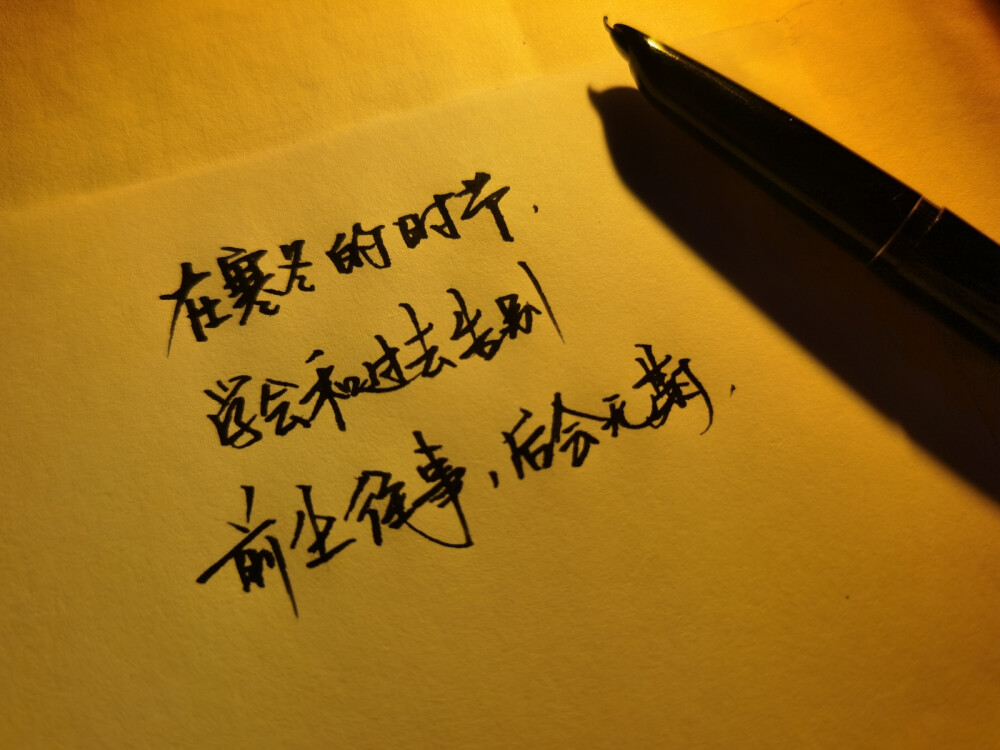 在寒冬的时节.
学会和过去告别
前尘往事,后会无期.